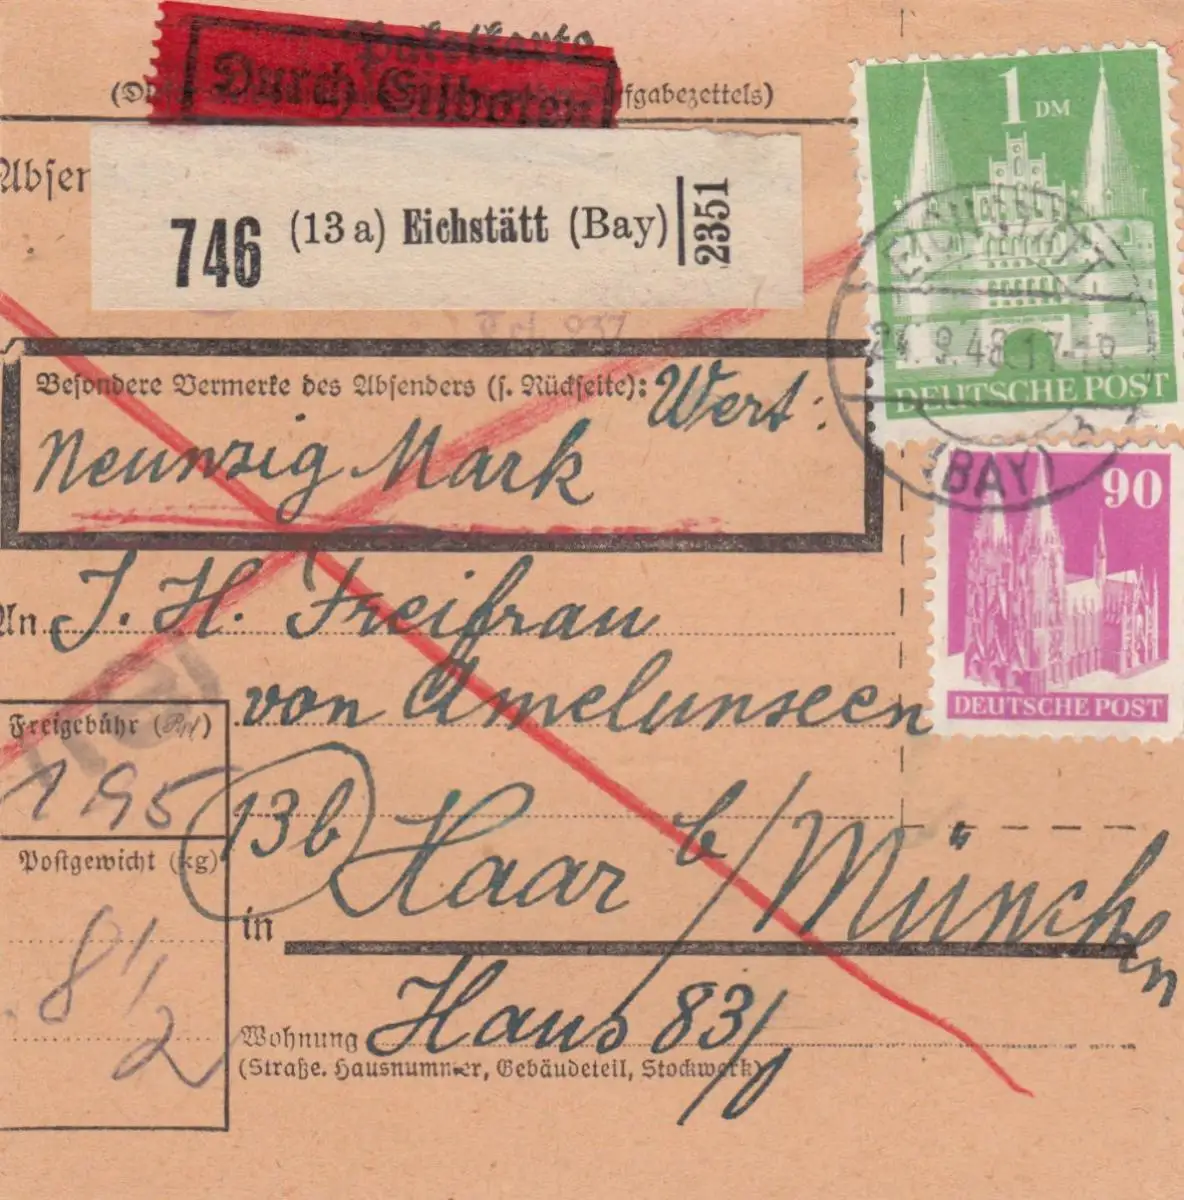 Paketkarte
Durch Eilboten
fgabezettels)
Absen
746 (13a) Eichstätt (Bay) 2351
1 DM
DEUTSCHE POST
EICHSTÄTT
24.9.48.17-18
(BAY)
90
DEUTSCHE POST
Tel. 937
Besondere Vermerke des Absenders (s. Rückseite): Wert:
Neunzig Mark
An J. H. Freifrau
von Amelunseen
Freigebühr (Rpf)
195
Postgewicht (kg)
8 1/2
(13b) Haar b/München
in
Wohnung Haus 83/1
(Straße, Hausnummer, Gebäudeteil, Stockwerk)